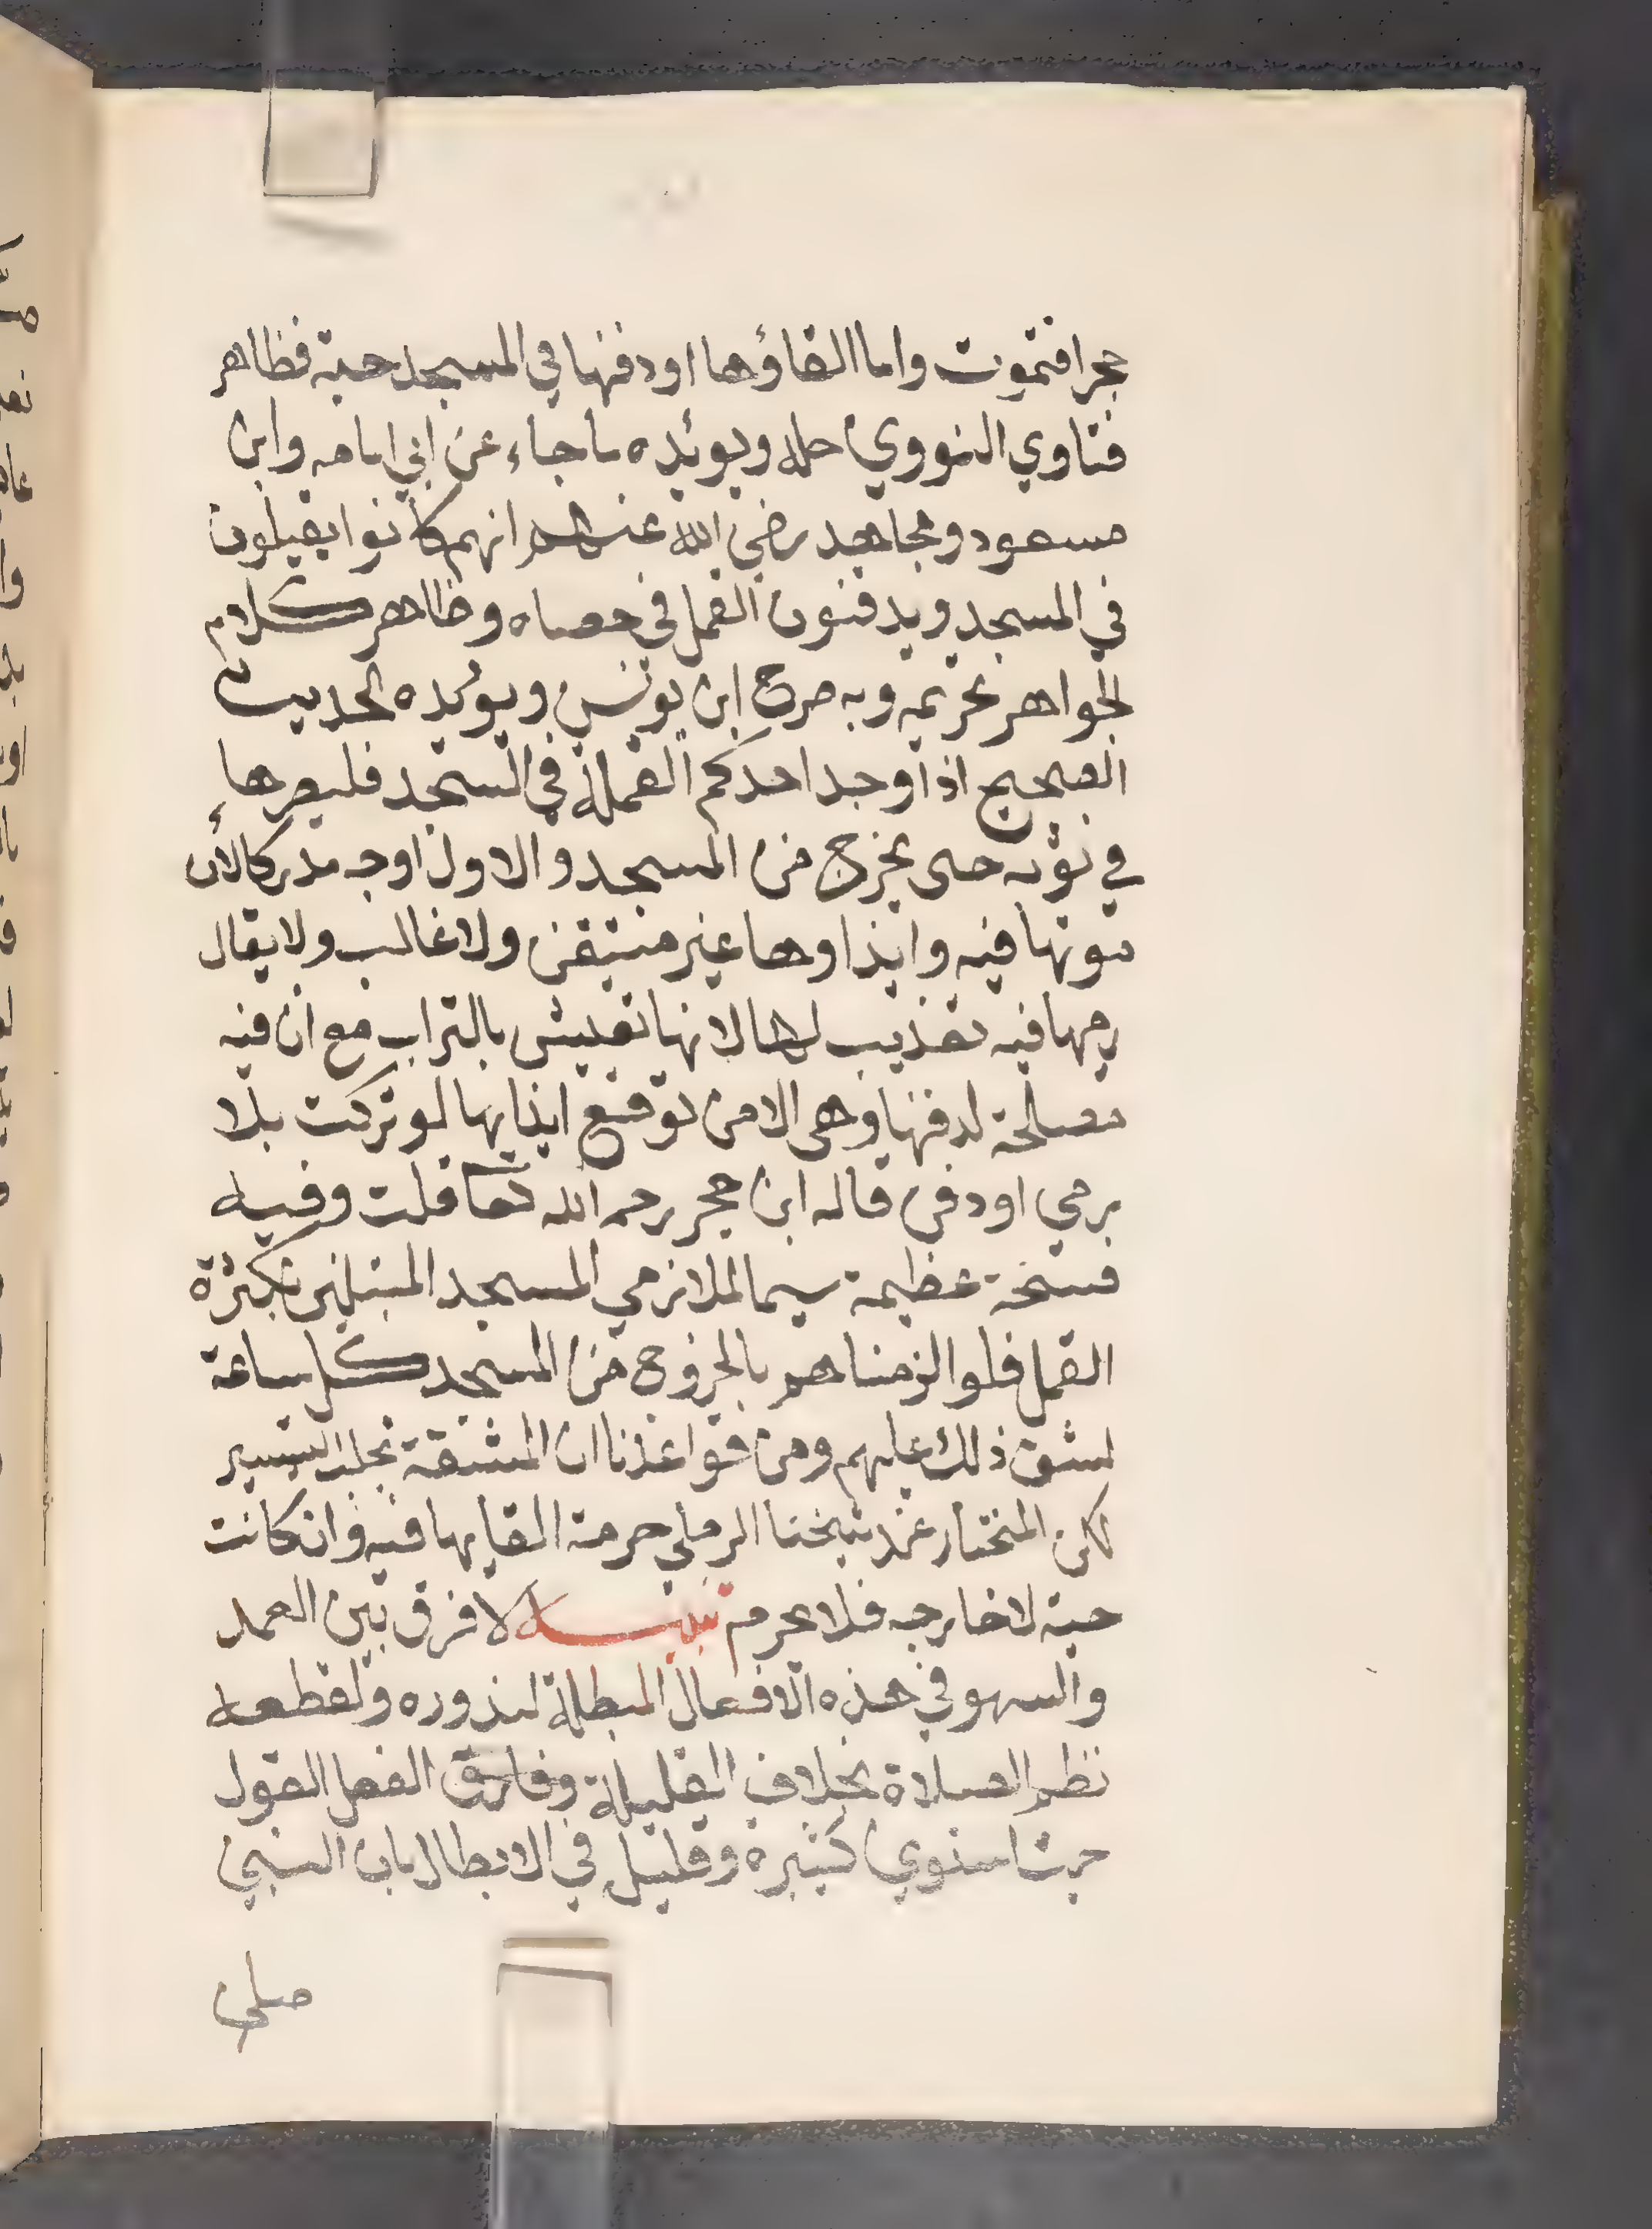 حجرا فتموت واما القاؤها او دفنها في المسجد حية فظاهر
فتاوي النووي حله ويوئده ما جاء عن ابي امامه وابن
مسعود ومجاهد رضي الله عنهم انهم كانوا يفيلون
في المسجد ويدفنون القمل في حصاه وظاهر كلام
الجواهر تحريمه وبه صرح ابن يونس ويوئده الحديث
الصحيح اذا وجد احدكم القملة في المسجد فليصرها
في ثوبه حتى يخرج من المسجد والاول اوجه مدركا لأن
موتها فيه وايذاوها غير متيقن ولا غالب ولا يقال
رميها فيه تعذيب لها لانها تعيش بالتراب مع ان فيه
مصلحة لدفنها وهي الامن توقع ايذايها لو تركت بلا
رمي او دفن قاله ابن حجر رحمه الله تعا قلت وفيه
فسخة عظيمة سيما لملازمي المسجد المبتلين بكثرة
القمل فلو الزمناهم بالخروج من المسجد كل ساعة
لشق ذلك عليهم ومن قواعدنا ان المشقة تجلب التيسير
لكن المختار عند شيخنا الرملي حرمة القايها فيه وان كانت
حية لا خارجه فلا يحرم تنبيه لا فرق بين العمد
والسهو في هذه الافعال المبطلة لندوره ولقطعه
نظم الصلاة بخلاف القليلة وفارق الفعل القول
حيث استوي كثيرة وقليل في الابطال بان النبي
صلى